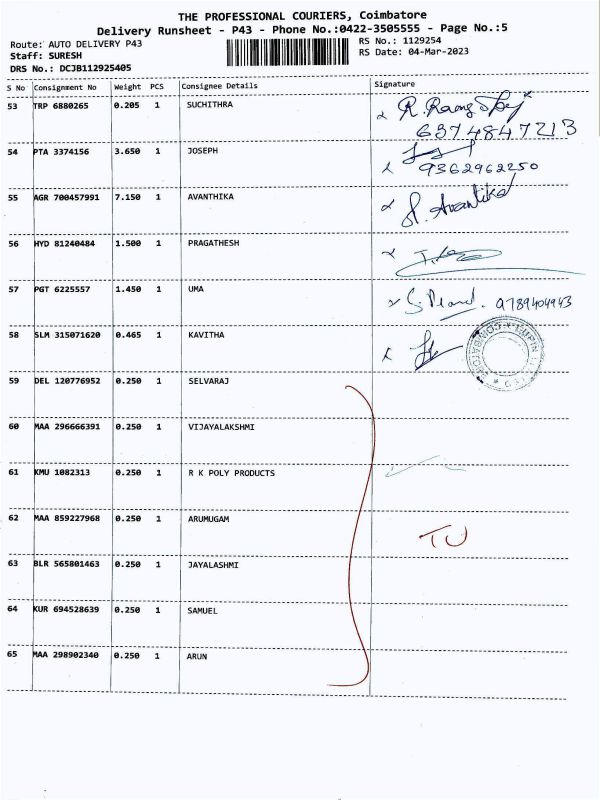 THE PROFESSIONAL COURIERS, Coimbatore
Delivery Runsheet - P43 - Phone No.:0422-3505555 - Page No.:5
Route: AUTO DELIVERY P43 RS No.: 1129254
Staff: SURESH RS Date: 04-Mar-2023
DRS No.: DCJB112925405
S No Consignment No Weight PCS Consignee Details Signature
53 TRP 6880265 0.205 1 SUCHITHRA
6374847213
54 PTA 3374156 3.650 1 JOSEPH
9362962250
55 AGR 700457991 7.150 1 AVANTHIKA Avantika
56 HYD 81240484 1.500 1 PRAGATHESH
57 PGT 6225557 1.450 1 UMA 9789404943
58 SLM 315071620 0.465 1 KAVITHA
59 DEL 120776952 0.250 1 SELVARAJ
60 MAA 296666391 0.250 1 VIJAYALAKSHMI
61 KMU 1082313 0.250 1 R K POLY PRODUCTS
62 MAA 859227968 0.250 1 ARUMUGAM TU
63 BLR 565801463 0.250 1 JAYALASHMI
64 KUR 694528639 0.250 1 SAMUEL
65 MAA 298902340 0.250 1 ARUN